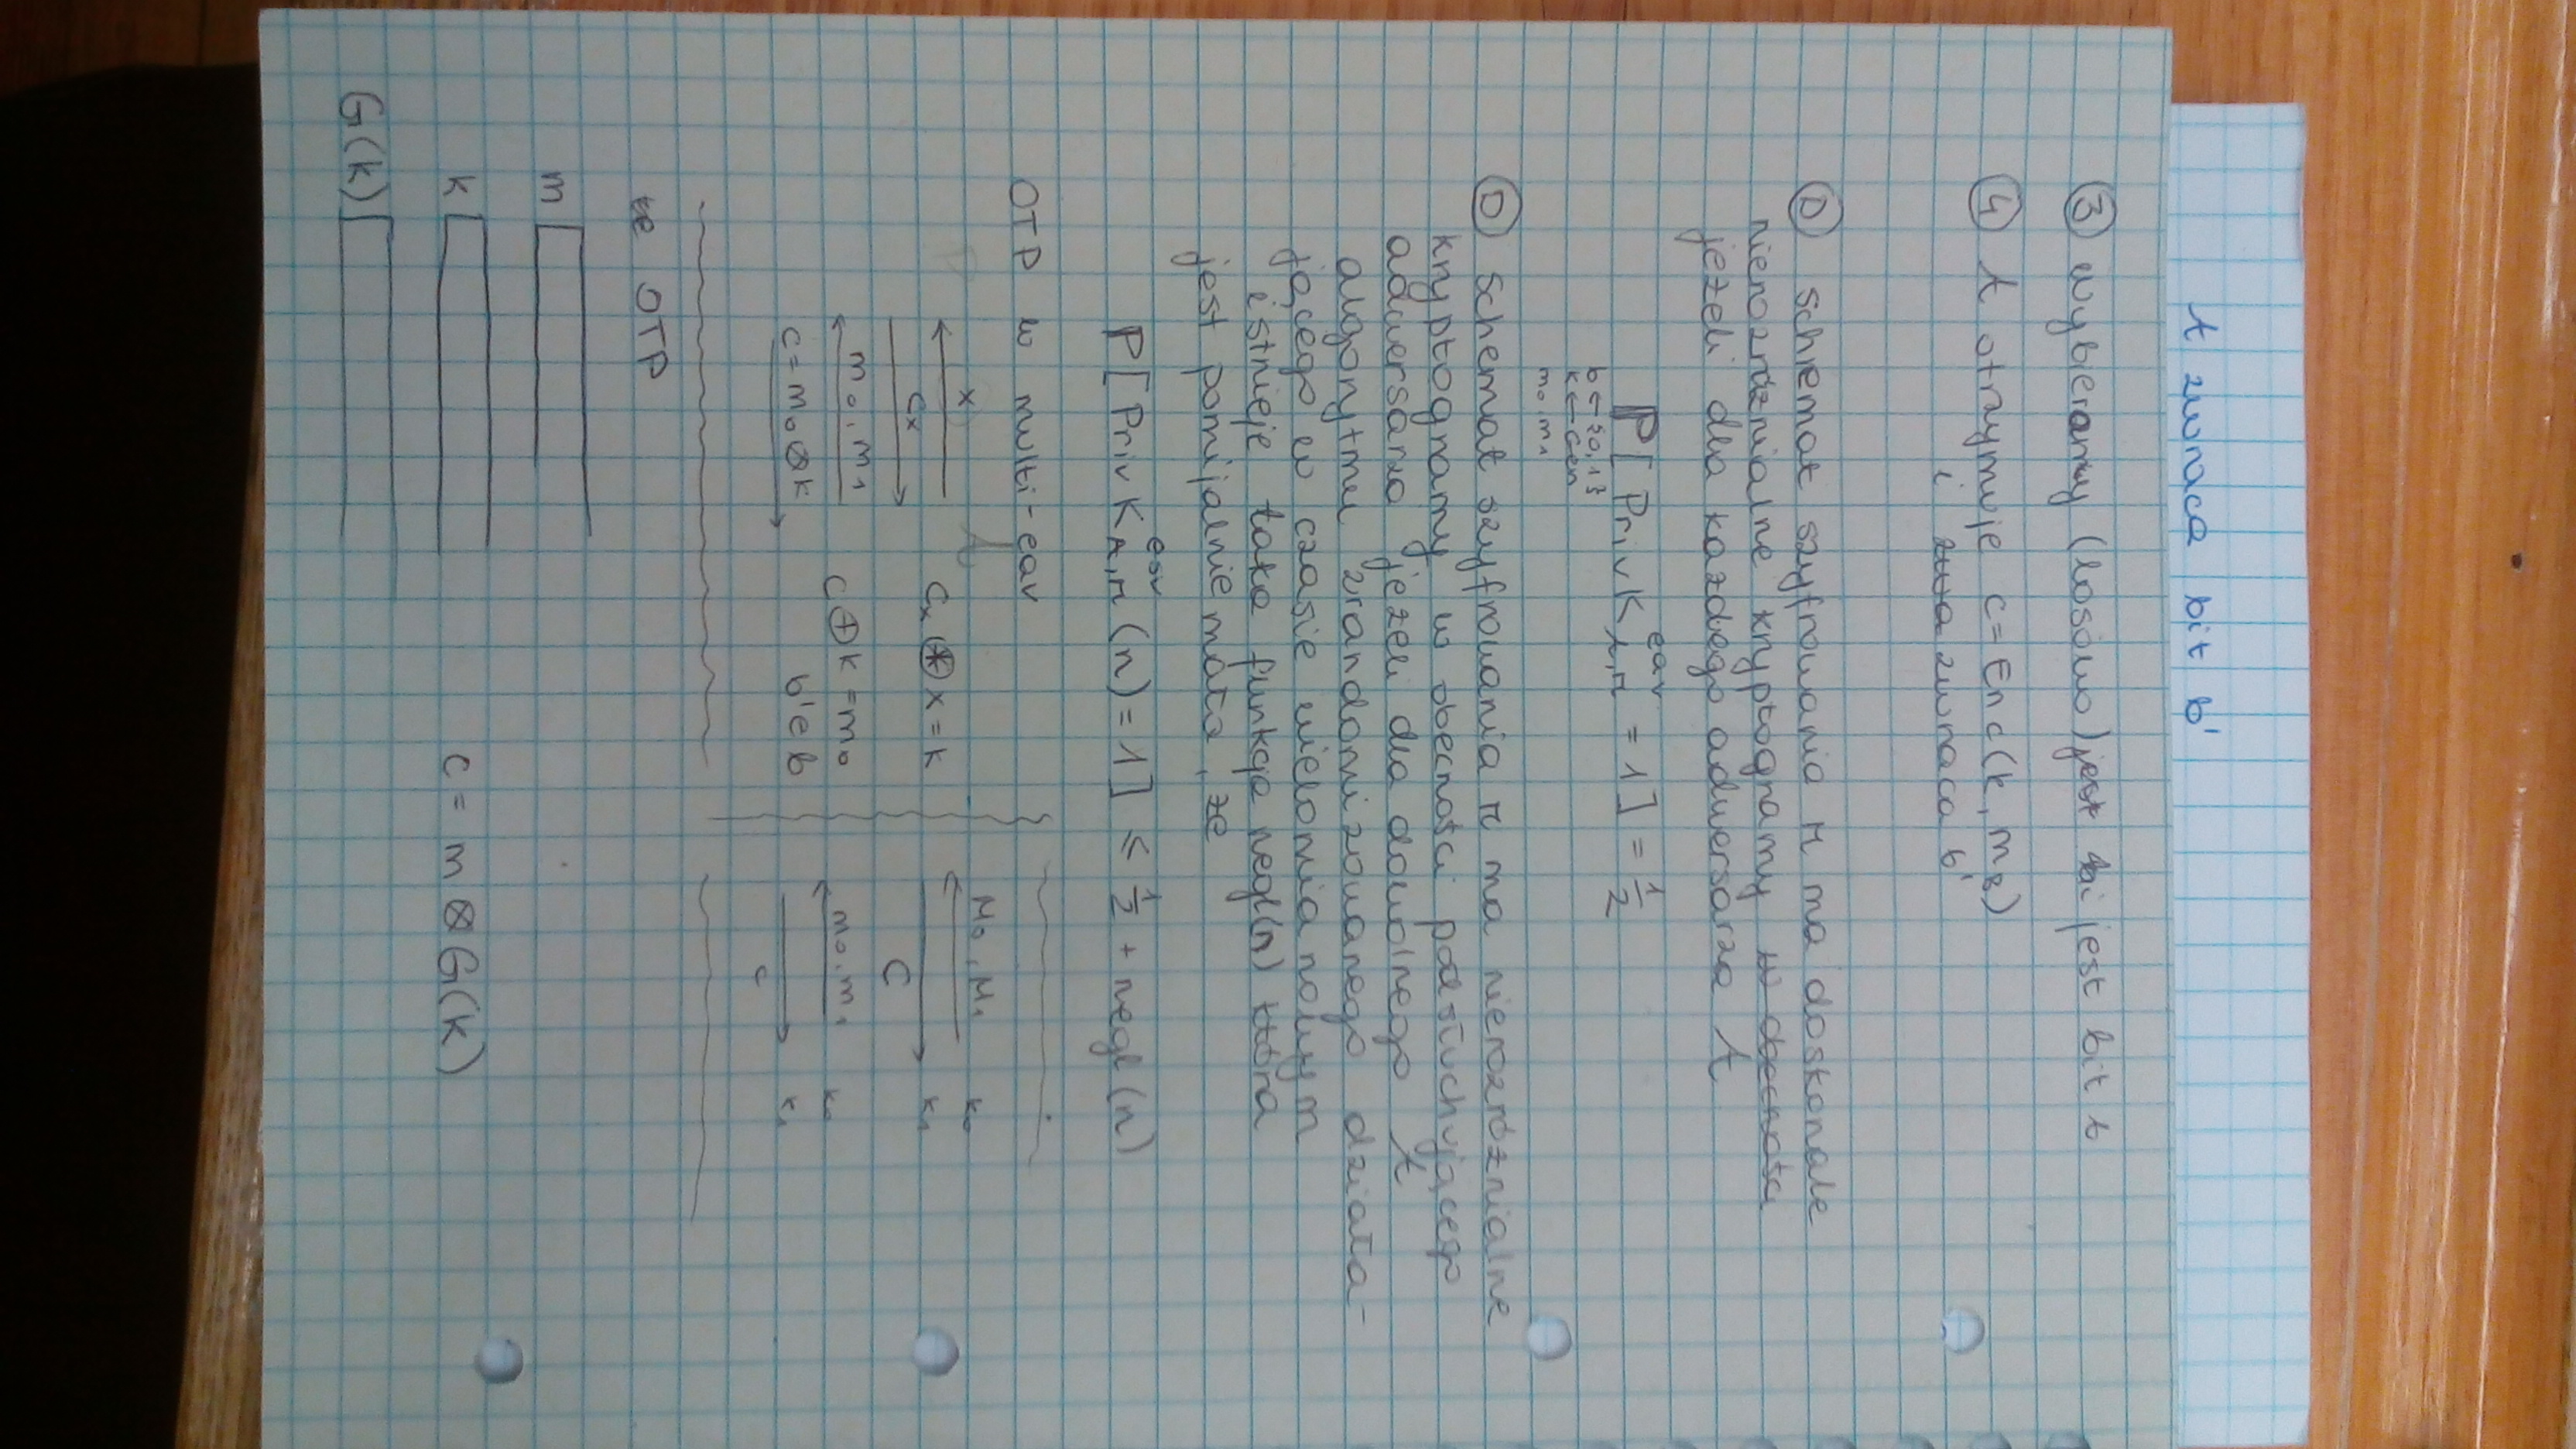 A zwraca bit b'
③ wybierany (losowo) jest bi jest bit b
④ A otrzymuje c = Enc(k, m_b)
i zwraca b'
Ⓓ schemat szyfrowania Π ma doskonale
nierozróżnialne kryptogramy w obecności
jeżeli dla każdego adwersarza A
P[PrivK^{eav}_{A,Π} = 1] = 1/2
b ← {0,1}
k ← Gen
m₀, m₁
Ⓓ Schemat szyfrowania Π ma nierozróżnialne
kryptogramy w obecności podsłuchującego
adwersarza jeżeli dla dowolnego A
algorytmu zrandomizowanego działa-
jącego w czasie wielomianowym
istnieje taka funkcja negl(n) która
jest pomijalnie mała, że
P[PrivK^{eav}_{A,Π}(n) = 1] ≤ 1/2 + negl(n)
OTP w multi-eav
x
c_x
c_x ⊛ x = k
m₀, m₁
c ⊕ k = m₀
c = m₀ ⊗ k
b' e b
M₀, M₁ k₀
C k₁
m₀, m₁ k₀
c k₁
OTP
m
k
c = m ⊗ G(k)
G(k)